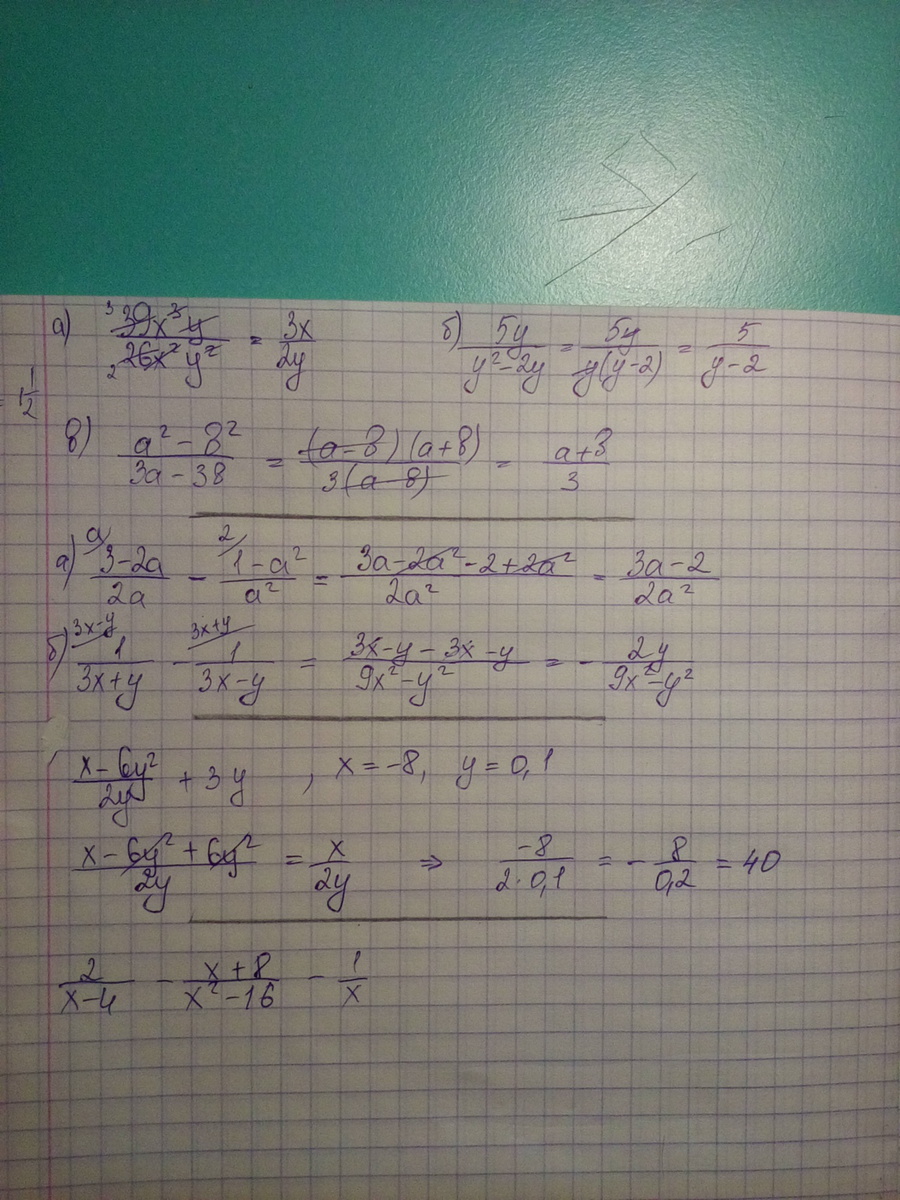 а) 39x³y/26x²y² = 3x/2y б) 5y/y²-2y = 5y/y(y-2) = 5/y-2
= 1 1/2
в) a²-в²/3a-3в = (a-в)(a+в)/3(a-в) = a+в/3
а) a/ 3-2a/2a - 2/ 1-a²/a² = 3a-2a²-2+2a²/2a² = 3a-2/2a²
б) 3x-y/ 1/3x+y - 3x+y/ 1/3x-y = 3x-y-3x-y/9x²-y² = - 2y/9x²-y²
x-6y²/2y + 3y , x=-8, y=0,1
x-6y²+6y²/2y = x/2y ⇒ -8/2·0,1 = - 8/0,2 = 40
2/x-4 - x+8/x²-16 - 1/x